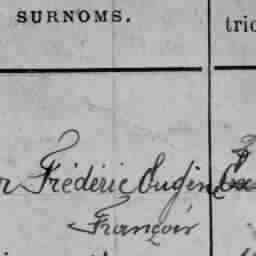 SURNOMS. tric
r Frédéric Eugin
François